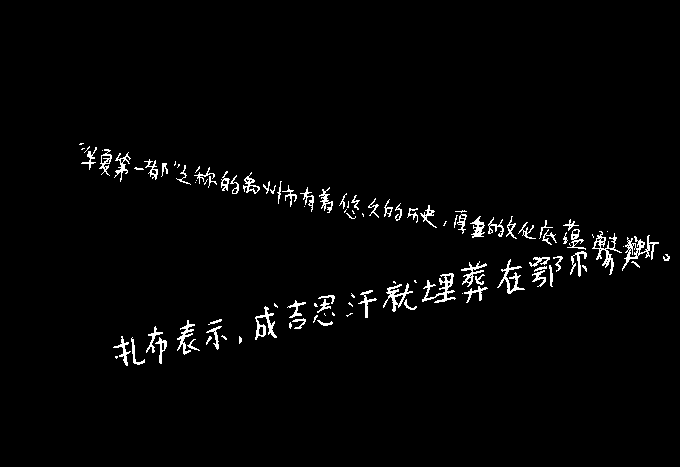 "华夏第一都"之称的禹州市有着悠久的历史，厚重的文化底蕴
扎布表示，成吉思汗就埋葬在鄂尔多斯。